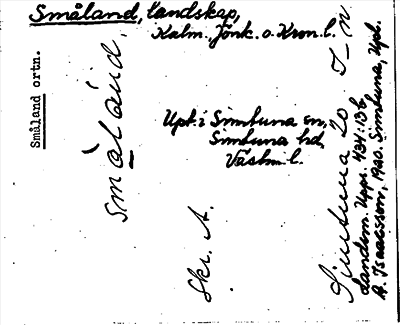 Småland, landskap,
Kalm., Jönk. o. Kron. l.
Småland ortn.
Småland,
Upt. i Simtuna sn,
Simtuna hd,
Västm. l.
Skr. A.
Simtuna 20
Landsm. Upps. 434:136,
A. Isaacsson, 1920. Simtuna, Upl.